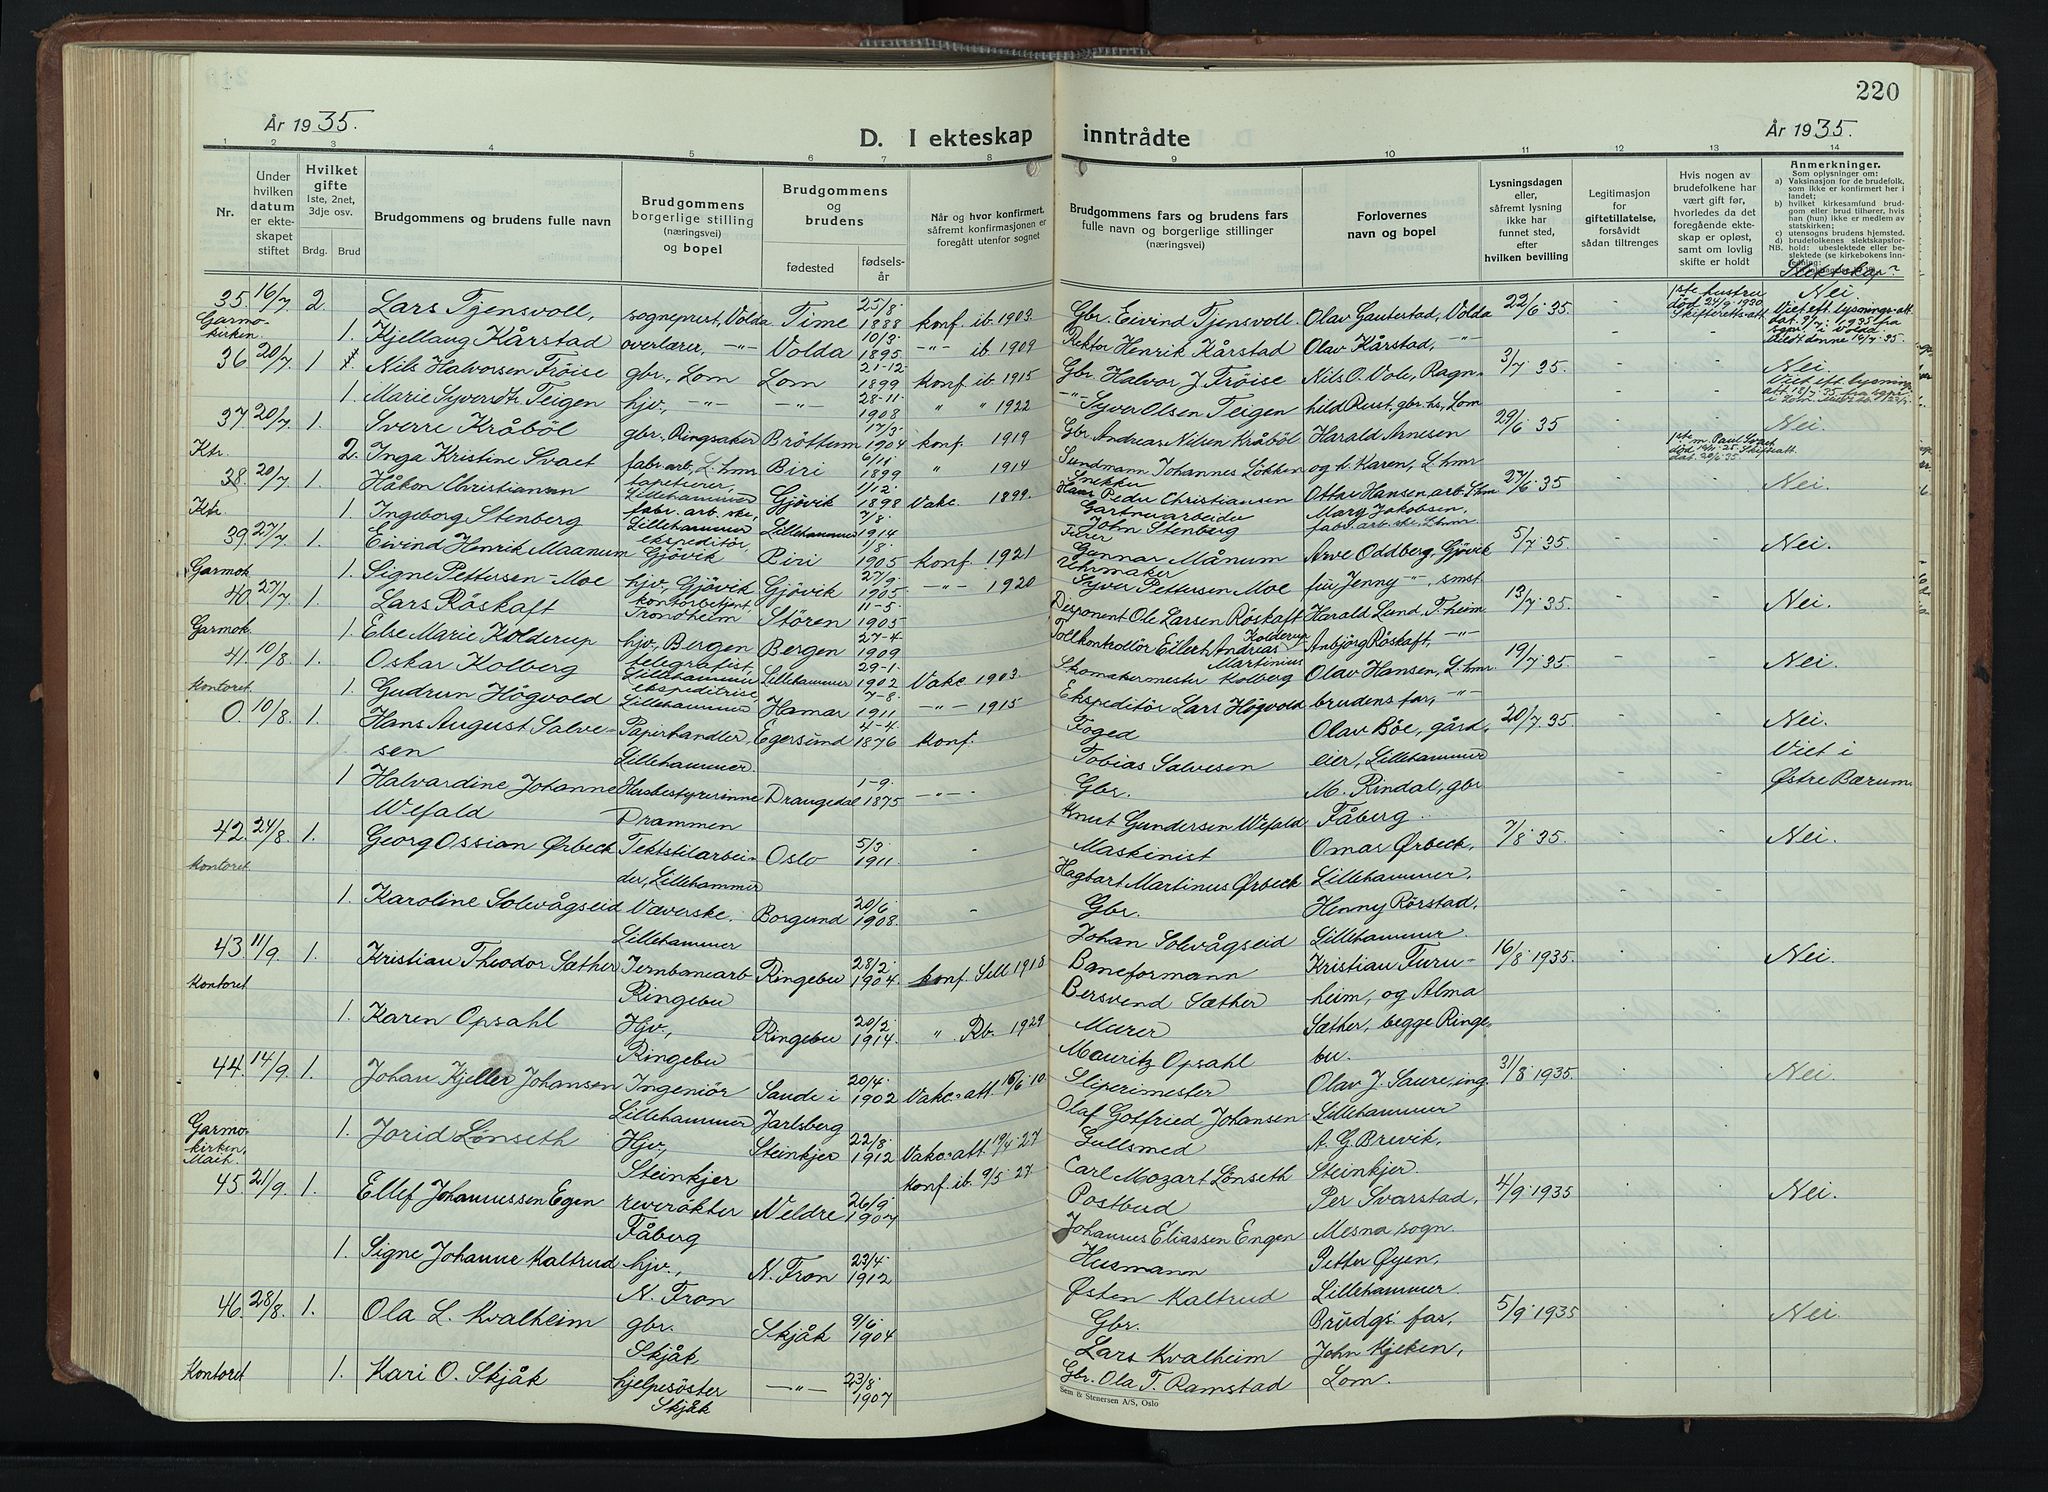 220
År 1935.
D. I ekteskap inntrådte
År 1935.
1 2 3 4 5 6 7 8 9 10 11 12 13 14
Nr.
Under hvilken datum er ekteskapet stiftet
Hvilket gifte 1ste, 2net, 3dje osv.
Brdg. Brud
Brudgommens og brudens fulle navn
Brudgommens borgerlige stilling (næringsvei) og bopel
Brudgommens og brudens
fødested
fødselsår
Når og hvor konfirmert, såfremt konfirmasjonen er foregått utenfor sognet
Brudgommens fars og brudens fars fulle navn og borgerlige stillinger (næringsvei)
Forlovernes navn og bopel
Lysningsdagen eller, såfremt lysning ikke har funnet sted, efter hvilken bevilling
Legitimasjon for giftetillatelse, forsåvidt sådan tiltrenges
Hvis nogen av brudefolkene har vært gift før, hvorledes da det foregående ekteskap er opløst, samt om lovlig skifte er holdt
Anmerkninger.
Som oplysninger om:
a) Vaksinasjon for de brudefolk, som ikke er konfirmert her i landet;
b) hvilket kirkesamfund brudgom eller brud tilhører, hvis han (hun) ikke er medlem av statskirken;
c) utensogns brudens hjemsted.
d) brudefolkenes slektskapsforhold: ubeslektede eller beslektede
Slektskap?
35. 16/7 2. Lars Tjensvoll, sogneprest, Volda Time 25/8 1888 konf. ib. 1903. Gbr. Eivind Tjensvoll. Olav Gautestad, Volda 22/6 35. 1ste hustru død 24/9 1930. Skifteretts-att. Nei
Garmokirken 1. Kjellaug Kårstad overlærer, -"- Volda 10/3 1895 -"- ib. 1909 Rektor Henrik Kårstad Olav Kårstad, -"-
36. 20/7 1 Nils Halvorsen Fröise gbr., Lom Lom 21-12 1899 konf. ib. 1915 Gbr. Halvor J. Fröise Nils O. Vole, Ragn- 3/7 35. Nei.
1. Marie Syversdtr. Teigen hjv., -"- -"- 28-11 1908 " " 1922 -"- Syver Olsen Teigen hild Rust, gbr. hs., Lom
37 20/7. 1. Sverre Kråböl gbr., Ringsaker Bröttum 17/3 1904 konf. 1919 Gbr. Andreas Nilsen Kråböl Harald Arnesen 29/6 35 Nei.
Ktr. 2. Inga Kristine Svaet fabr. arb., L.hmr Biri 6/11 1899 " 1914 Sundmann Johannes Lökken og h. Karen, L.hmr 1ste m. Paul Svaet
38. 20/7 1. Håkon Christiansen tapetserer, Lillehammer Gjövik 1/12 1898 Vakc. 1899. Snekker Hans Peder Christiansen Ottar Hansen, arb. L.hmr 27/6 35 Nei.
Ktr. 1. Ingeborg Stenberg fabr. arb. ske, Lillehammer Lillehammer 7/8 1914 Gartnerarbeider John Stenberg Mary Jakobsen, fabr. arb. ske, L.hmr.
39. 27/7. 1. Eivind Henrik Maanum ekspeditör, Gjövik Biri 1/8 1905 konf. 1921 Filer Gunnar Månum Arve Oddberg, Gjövik 5/7 35 Nei.
Garmok. 1. Signe Pettersen-Moe hjv., Gjövik Gjövik 27/9 1905 -"- 1920 Uhrmaker Syver Pettersen Moe fru Jenny -"-, smst
40 27/7 1. Lars Röskaft kontorbetjent, Trondheim Stören 11-5 1905 Disponent Ole Larsen Röskaft Harald Lund, T.heim 13/7 35. Nei.
Garmok. 1. Else Marie Kolderup hjv., Bergen Bergen 27-4 1909 Tollkontrollör Eilert Andreas Kolderup Anbjörg Röskaft, -"-
41. 10/8. 1. Oskar Kolberg telegrafist, Lillehammer Lillehammer 29-1 1902 Vakc. 1903. Skomakermester Martinius Kolberg Olav Hansen, L.hmr 19/7 35. Nei.
kontoret. 1. Gudrun Högvold ekspeditrise Lillehammer Hamar 7-8 1911 -"- 1915 Ekspeditör Lars Högvold brudens far, -"-
0. 10/8. 1. Hans August Salve- Papirhandler, Egersund 4-4 1876 konf. Foged Olav Böe, gård, 20/7 35. Nei.
sen Lillehammer. Tobias Salvesen eier, Lillehammer Viet i
1 Halvardine Johanne Husbestyrerinne Drangedal 1-9 1875 -"- Gbr. M. Rindal, gbr Østre Bærum.
Wefald Drammen Knut Gundersen Wefald Fåberg.
42. 24/8. 1. Georg Ossian Ørbeck Tekstilarbei- Oslo 5/3 1911 Maskinist Omar Ørbeck, 7/8 35. Nei.
kontoret. der, Lillehammer Hagbart Martinus Ørbeck Lillehammer,
1. Karoline Solvågseid Væverske. Borgund 20/6 1908. Gbr. Henny Rörstad,
Lillehammer Johan Solvågseid Lillehammer.
43 11/9. 1. Kristian Theodor Sæther Jernbanearb Ringebu 28/2 1904. konf. Lill 1918 Baneformann Kristian Furu- 16/8 1935. Nei.
kontoret Ringebu Bersvend Sæther heim, og Alma
1. Karen Opsahl Hjv., Ringebu 20/2 1914. " Rb. 1929 Murer Sæther, begge Ringe-
Ringebu Mauritz Opsahl bu.
44. 14/9. 1. Johan Kjeller Johansen Ingeniör Sande i 20/4 1902 Vakc. att. 15/6 10. Sliperimester Olav J. Saure, ing. 31/8 1935. Nei.
Garmokirken, Maih. Lillehammer Jarlsberg Olaf Gotfried Johansen Lillehammer
1. Jorid Lønseth Hjv., Steinkjer 22/8 1912 Vakc. att. 19/4 27 Gullsmed A. G. Brevik,
Steinkjer konf. ib. 9/5 27. Carl Mozart Lønseth Steinkjer.
45. 21/9. 1. Ellef Johannessen Egen reverökter Veldre 26/9 1907 Postbud Per Svarstad, 4/9 1935 Nei.
Fåberg Johannes Eliassen Engen Mesna sogn.
1. Signe Johanne Kaltrud hjv., N. Fron 23/4 1912 Husmann Petter Øyen,
N. Fron Østen Kaltrud Lillehammer.
46. 28/8. 1. Ola L. Kvalheim gbr. Skjåk 9/6 1904 Gbr. Brudgs. far, 5/9 1935 Nei.
Skjåk Lars Kvalheim John Kjeken,
Kontoret 1. Kari O. Skjåk hjelpesöster -"- 23/8 1907 Gbr. Ola T. Ramstad Lom.
Skjåk
Sem & Stenersen A/S, Oslo